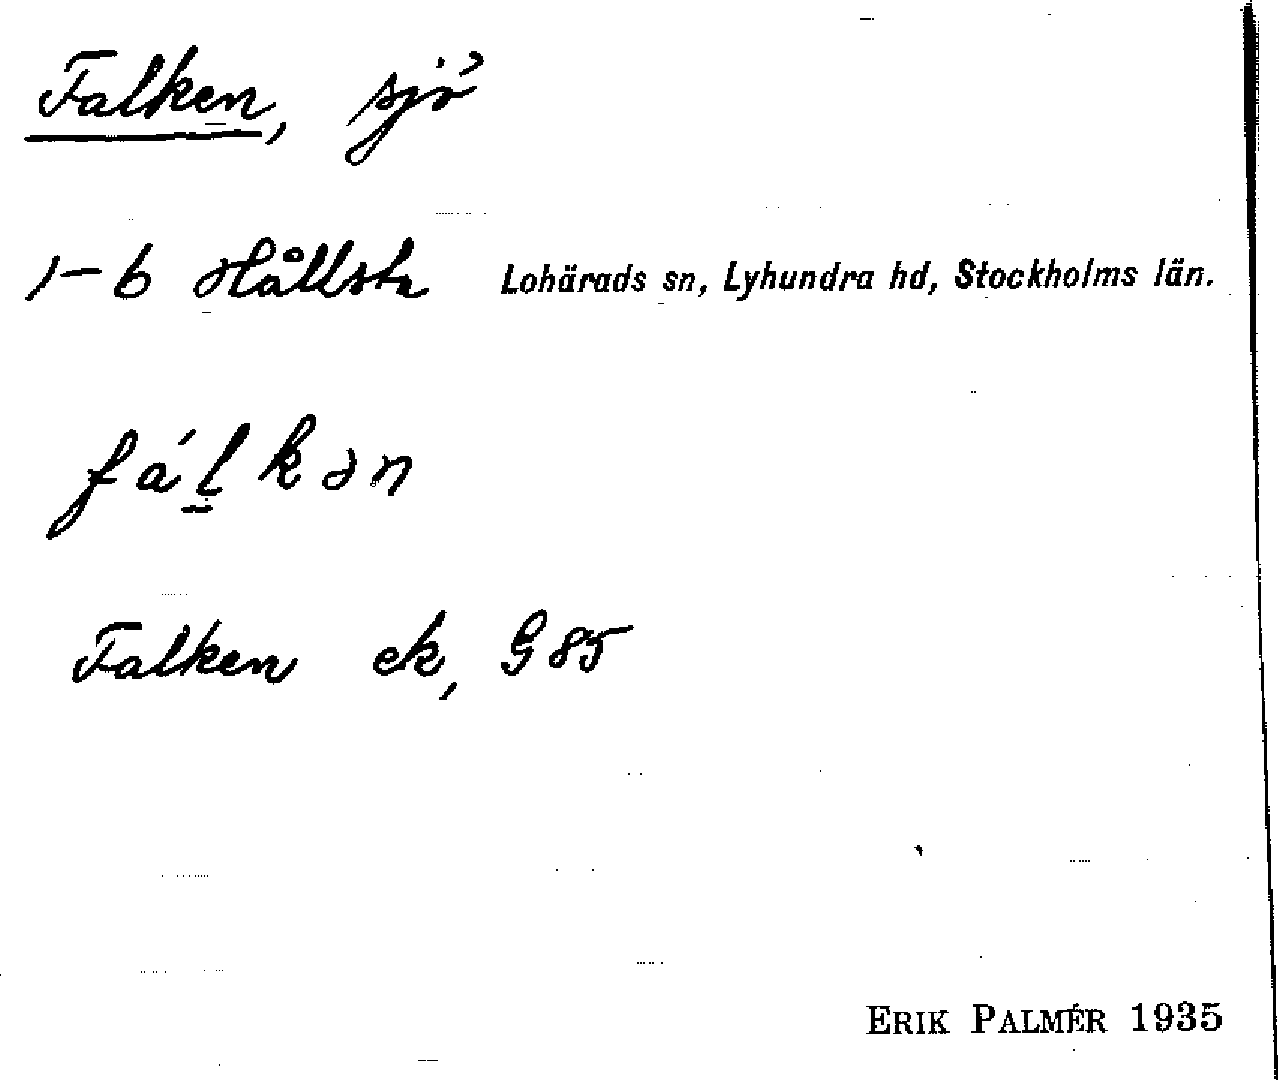 Falken, sjö
1-6 Hållsta Lohärads sn, Lyhundra hd, Stockholms län.
fál̠kən
Falken ek, G 85
ERIK PALMÉR 1935